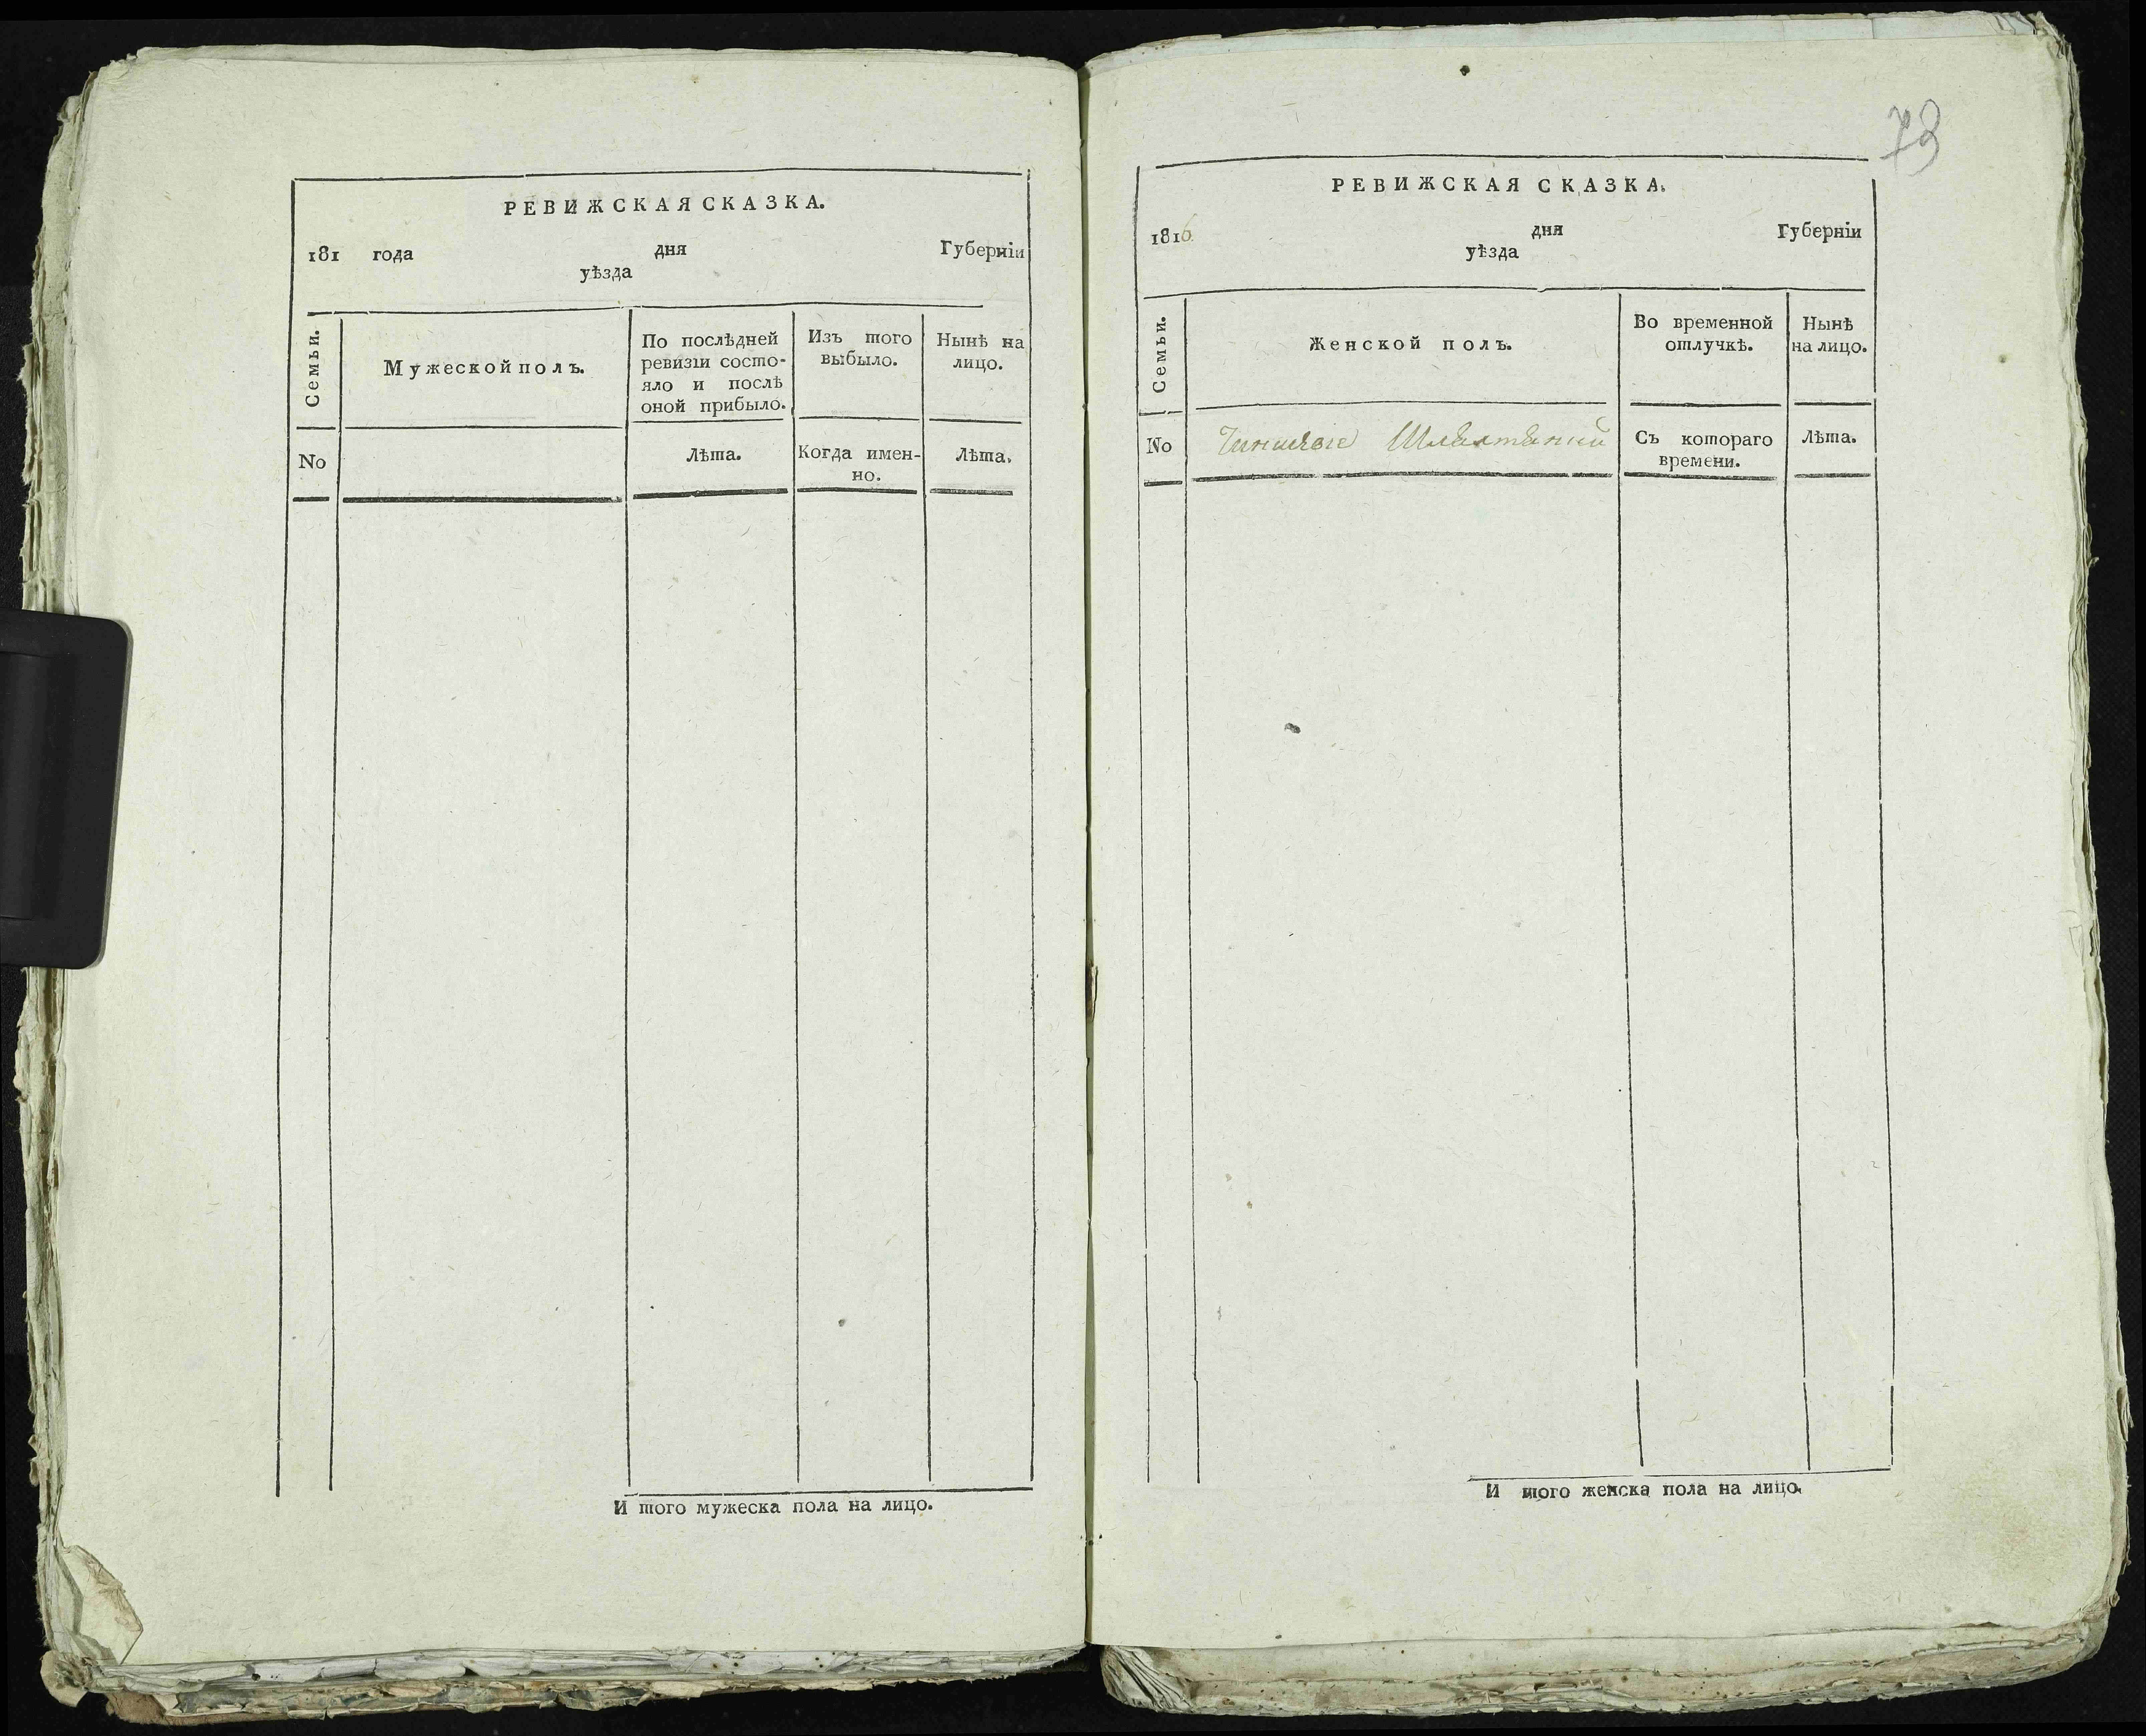 РЕВИЖСКАЯ СКАЗКА.
181 года дня Губерніи
уѣзда
Семьи.
Мужеской полъ.
По послѣдней
ревизіи состо-
яло и послѣ
оной прибыло.
Изъ того
выбыло.
Нынѣ на
лицо.
No
Лѣта.
Когда имен-
но.
Лѣта.
И того мужеска пола на лицо.
73
РЕВИЖСКАЯ СКАЗКА.
1816 дня Губерніи
уѣзда
Семьи.
Женской полъ.
Во временной
отлучкѣ.
Нынѣ
на лицо.
No
Съ котораго
времени.
Лѣта.
И того женска пола на лицо.